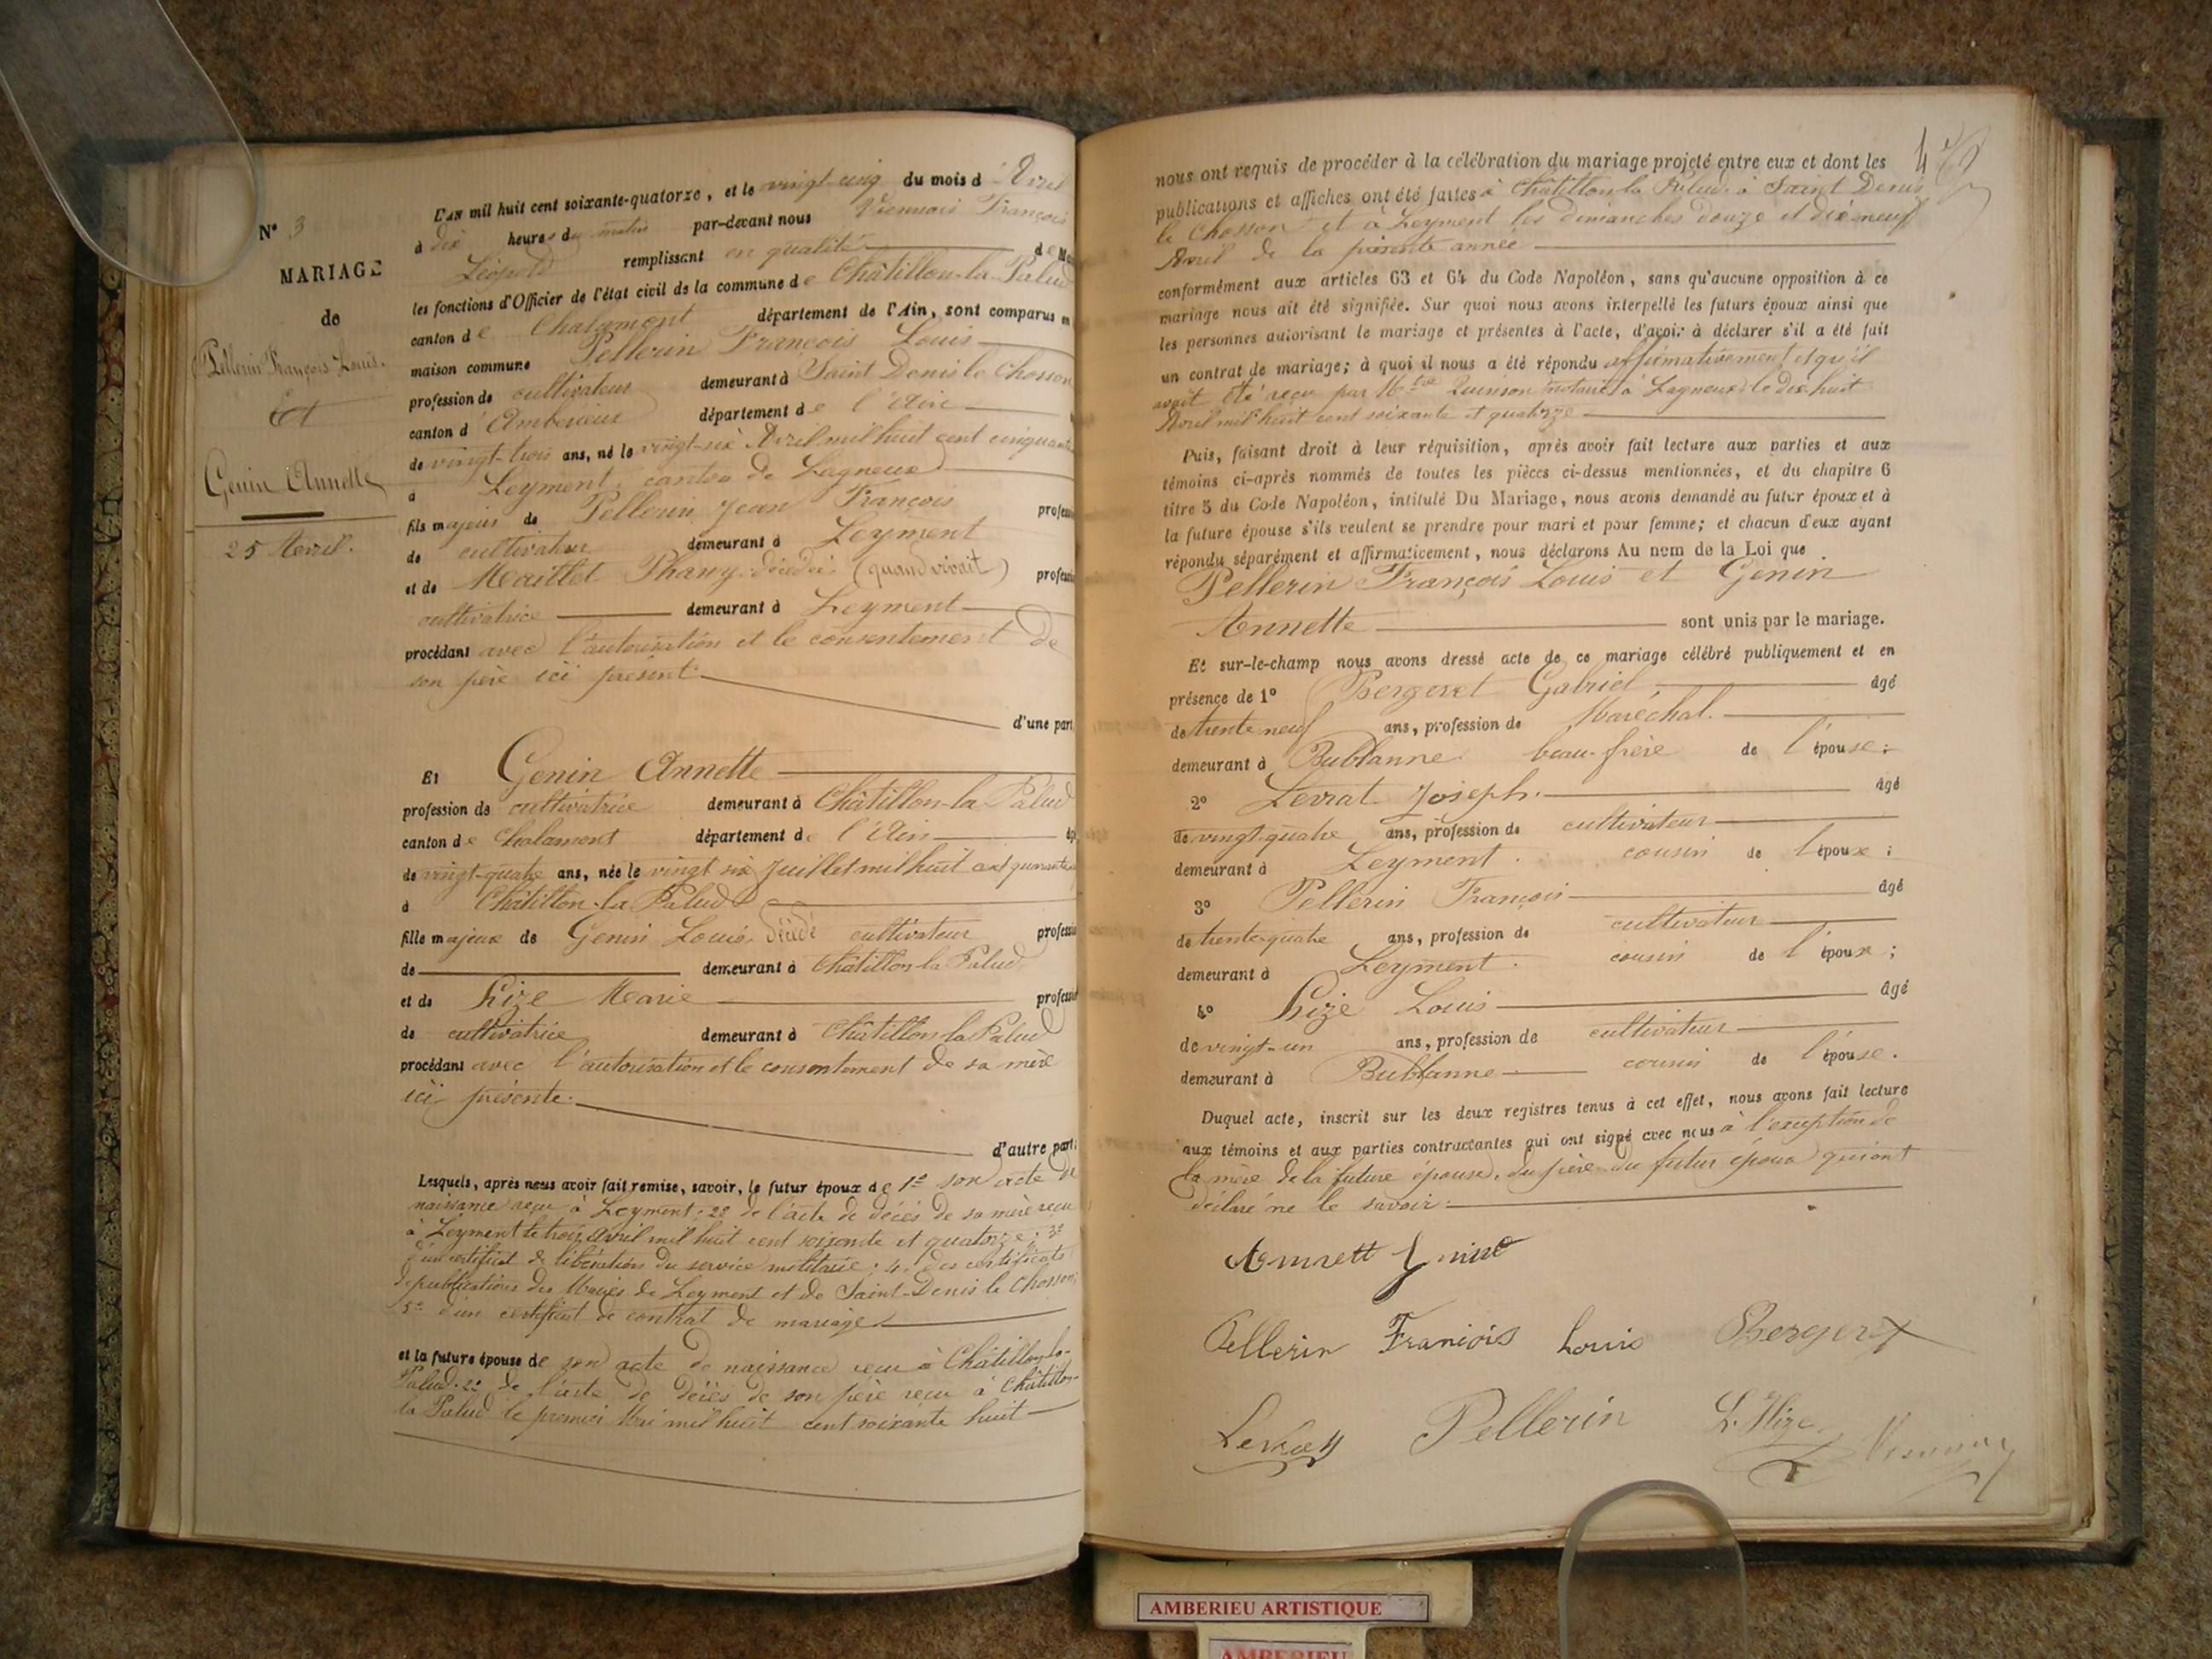 N° 3
MARIAGE
de
Pellerin François Louis.
Et
Genin Annette
25 Avril.
L'AN mil huit cent soixante-quatorze, et le vingt-cinq du mois d'Avril
à dix heures du matin par-devant nous Viennois François
Léopold remplissant en qualité de
les fonctions d'Officier de l'état civil de la commune de Châtillon-la-Palud
canton de Chalamont département de l'Ain, sont comparus en
maison commune Pellerin François Louis
profession de cultivateur demeurant à Saint Denis le Chosson
canton d'Ambérieux département de l'Ain
de vingt-trois ans, né le vingt-six Avril mil huit cent cinquante
à Leyment, canton de Lagneux
fils majeur de Pellerin Jean François profession
de cultivateur demeurant à Leyment
et de Maillet Phany décédée (quand vivait) profession
cultivatrice demeurant à Leyment
procédant avec l'autorisation et le consentement de
son père ici présent.
d'une part
Et Genin Annette
profession de cultivatrice demeurant à Châtillon-la-Palud
canton de Chalamont département de l'Ain
de vingt-quatre ans, née le vingt six Juillet mil huit cent quarante
à Châtillon-la-Palud
fille majeure de Genin Louis, décédé cultivateur profession
de demeurant à Châtillon la Palud
et de Hize Marie profession
de cultivatrice demeurant à Châtillon la Palud
procédant avec l'autorisation et le consentement de sa mère
ici présente.
d'autre part:
Lesquels, après nous avoir fait remise, savoir, le futur époux de 1° son acte de
naissance reçu à Leyment; 2° de l'acte de décès de sa mère reçu
à Leyment le trois Avril mil huit cent soixante et quatorze; 3°
d'un certificat de libération du service militaire; 4° des certificats
de publications des Mairies de Leyment et de Saint-Denis le Chosson;
5° d'un certificat de contrat de mariage
et la future épouse de son acte de naissance reçu à Châtillon-la-
Palud. 2° de l'acte de décès de son père reçu à Châtillon-
la Palud le premier Mai mil huit cent soixante huit
nous ont requis de procéder à la célébration du mariage projeté entre eux et dont les
publications et affiches ont été faites à Châtillon la Palud, à Saint Denis
le Chosson et à Leyment les dimanches douze et dix neuf
Avril de la présente année
conformément aux articles 63 et 64 du Code Napoléon, sans qu'aucune opposition à ce
mariage nous ait été signifiée. Sur quoi nous avons interpellé les futurs époux ainsi que
les personnes autorisant le mariage et présentes à l'acte, d'avoir à déclarer s'il a été fait
un contrat de mariage; à quoi il nous a été répondu affirmativement et qu'il
avait été reçu par Mtre Quinson notaire à Lagneux le dix huit
Avril mil huit cent soixante et quatorze
Puis, faisant droit à leur réquisition, après avoir fait lecture aux parties et aux
témoins ci-après nommés de toutes les pièces ci-dessus mentionnées, et du chapitre 6
titre 5 du Code Napoléon, intitulé Du Mariage, nous avons demandé au futur époux et à
la future épouse s'ils veulent se prendre pour mari et pour femme; et chacun d'eux ayant
répondu séparément et affirmativement, nous déclarons Au nom de la Loi que
Pellerin François Louis et Genin
Annette sont unis par le mariage.
Et sur-le-champ nous avons dressé acte de ce mariage célébré publiquement et en
présence de 1° Bergeret Gabriel âgé
de trente neuf ans, profession de Maréchal.
demeurant à Bublanne beau-frère de l'épouse;
2° Levrat Joseph. âgé
de vingt-quatre ans, profession de cultivateur
demeurant à Leyment. cousin de l'époux;
3° Pellerin François âgé
de trente-quatre ans, profession de cultivateur
demeurant à Leyment. cousin de l'époux;
4° Hize Louis âgé
de vingt-un ans, profession de cultivateur
demeurant à Bublanne cousin de l'épouse.
Duquel acte, inscrit sur les deux registres tenus à cet effet, nous avons fait lecture
aux témoins et aux parties contractantes qui ont signé avec nous à l'exception de
la mère de la future épouse, du père du futur époux qui ont
déclaré ne le savoir.
Pellerin François Louis Bergeret
Pellerin L. Hize
AMBERIEU ARTISTIQUE
AMBERIEU